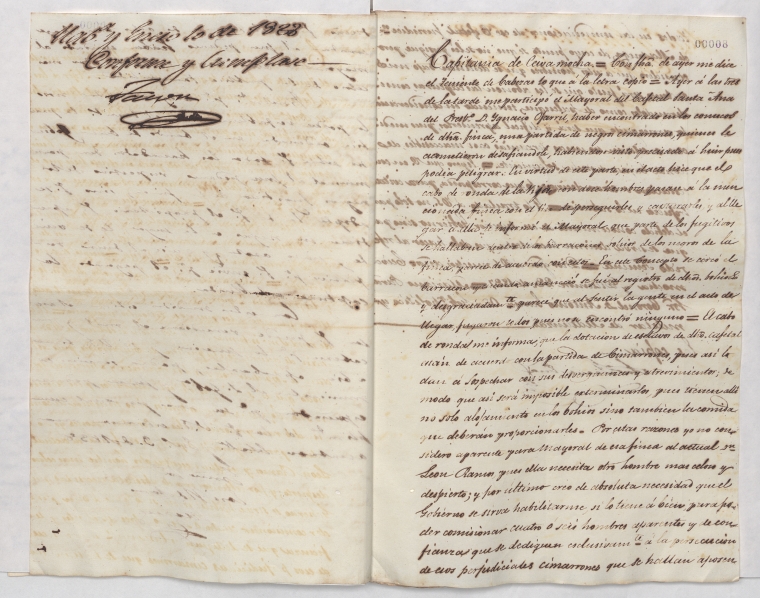 y Enero 10 de 1828
Conforme y Cumplase
00008
Capitania de Ceiva mocha = Con fha. de ayer me dice
el Teniente de Cabezas lo que a la letra copio = Ayer á las tres
de la tarde me participó el Mayoral del Cafetal Santa Ana
del Presbº. D. Ignacio Ofarril, haber encontrado en los
de dha. finca, una partida de negros cimarrones, quienes le
acometieron desafiandole, habiendose visto precisado á huir pues
podia peligrar. En virtud de este parte, en el acto hice que el
cabo de ronda de la hombres pasase á la men
cionada finca con el fin de perseguirlos y capturarlos, y al lle
gar á ella le informó el Mayoral, que parte de los fugitivos
se hallaban dentro de los negros de la
finca, puestos de acuerdo con ellos. En este concepto se cercó el
barracon y se fue al registro de dhos. bohios
y desgraciadamte. parece que al sentir la gente en el acto de
llegar, fugaron todos pues no se encontró ninguno = El cabo
de rondas me informa, que la dotacion de esclavos de dho. cafetal
están de acuerdo con la partida de Cimarrones, pues asi lo
dan a sospechar con sus y atrevimientos; de
modo que asi será imposible exterminarlos pues tienen alli
no solo alojamiento en los bohios sino tambien la comida
que deberán proporcionarles. Por estas razones yo no con
sidero aparente para Mayoral de esa finca al actual
Leon Ramos, pues ella necesita otro hombre mas celoso y
despierto; y por último creo de absoluta necesidad que el
Gobierno se sirva habilitarme si lo tiene á bien para po
der comisionar cuatro ó seis hombres aparentes y de con
fianzas que se dediquen esclusivamte. á la persecucion
de esos perjudiciales cimarrones que se hallan aposen